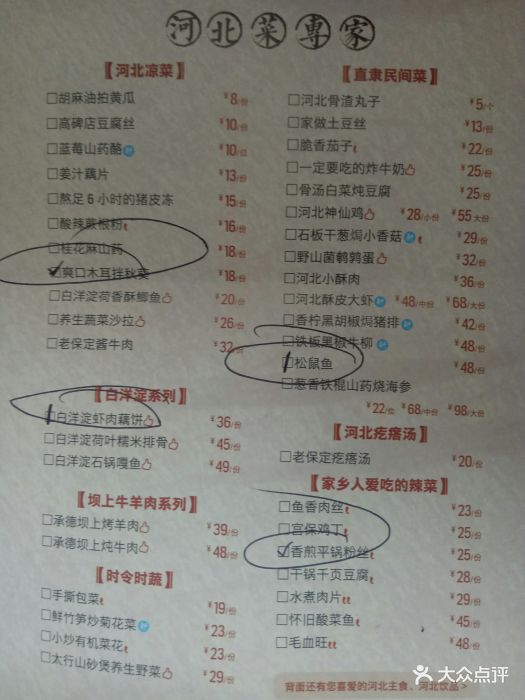 河北菜專家
【河北凉菜】
□胡麻油拍黄瓜 ¥8/份
□高碑店豆腐丝 ¥10/份
□蓝莓山药酪 ¥10/位
□姜汁藕片 ¥13/份
□熬足6小时的猪皮冻 ¥15/份
□酸辣蕨根粉 ¥16/份
□桂花麻山药 ¥18/份
□爽口木耳拌秋葵 ¥18/份
□白洋淀荷香酥鲫鱼 ¥20/份
□养生蔬菜沙拉 ¥26/份
□老保定酱牛肉 ¥32/份
【白洋淀系列】
□白洋淀虾肉藕饼 ¥36/份
□白洋淀荷叶糯米排骨 ¥45/份
□白洋淀石锅嘎鱼 ¥49/份
【坝上牛羊肉系列】
□承德坝上烤羊肉 ¥39/份
□承德坝上炖牛肉 ¥48/份
【时令时蔬】
□手撕包菜 ¥19/份
□鲜竹笋炒菊花菜 ¥23/份
□小炒有机菜花 ¥23/份
□太行山砂煲养生野菜 ¥29/份
【直隶民间菜】
□河北骨渣丸子 ¥5/个
□家做土豆丝 ¥13/份
□脆香茄子 ¥22/份
□一定要吃的炸牛奶 ¥25/份
□骨汤白菜炖豆腐 ¥25/份
□河北神仙鸡 ¥28/小份 ¥55大份
□石板干葱焗小香菇 ¥29/份
□野山菌鹌鹑蛋 ¥32/份
□河北小酥肉 ¥36/份
□河北酥皮大虾 ¥48/中份 ¥68/大份
□香柠黑胡椒焗猪排 ¥42/份
□铁板黑椒牛柳 ¥48/份
□松鼠鱼 ¥48/份
□葱香铁棍山药烧海参
¥22/位 ¥68/中份 ¥98/大份
【河北疙瘩汤】
□老保定疙瘩汤 ¥20/份
【家乡人爱吃的辣菜】
□鱼香肉丝 ¥23/份
□宫保鸡丁 ¥25/份
□香煎平锅粉丝 ¥25/份
□干锅千页豆腐 ¥28/份
□水煮肉片 ¥29/份
□怀旧酸菜鱼 ¥45/份
□毛血旺 ¥48/份
背面还有您喜爱的河北主食、河北饮品>
大众点评